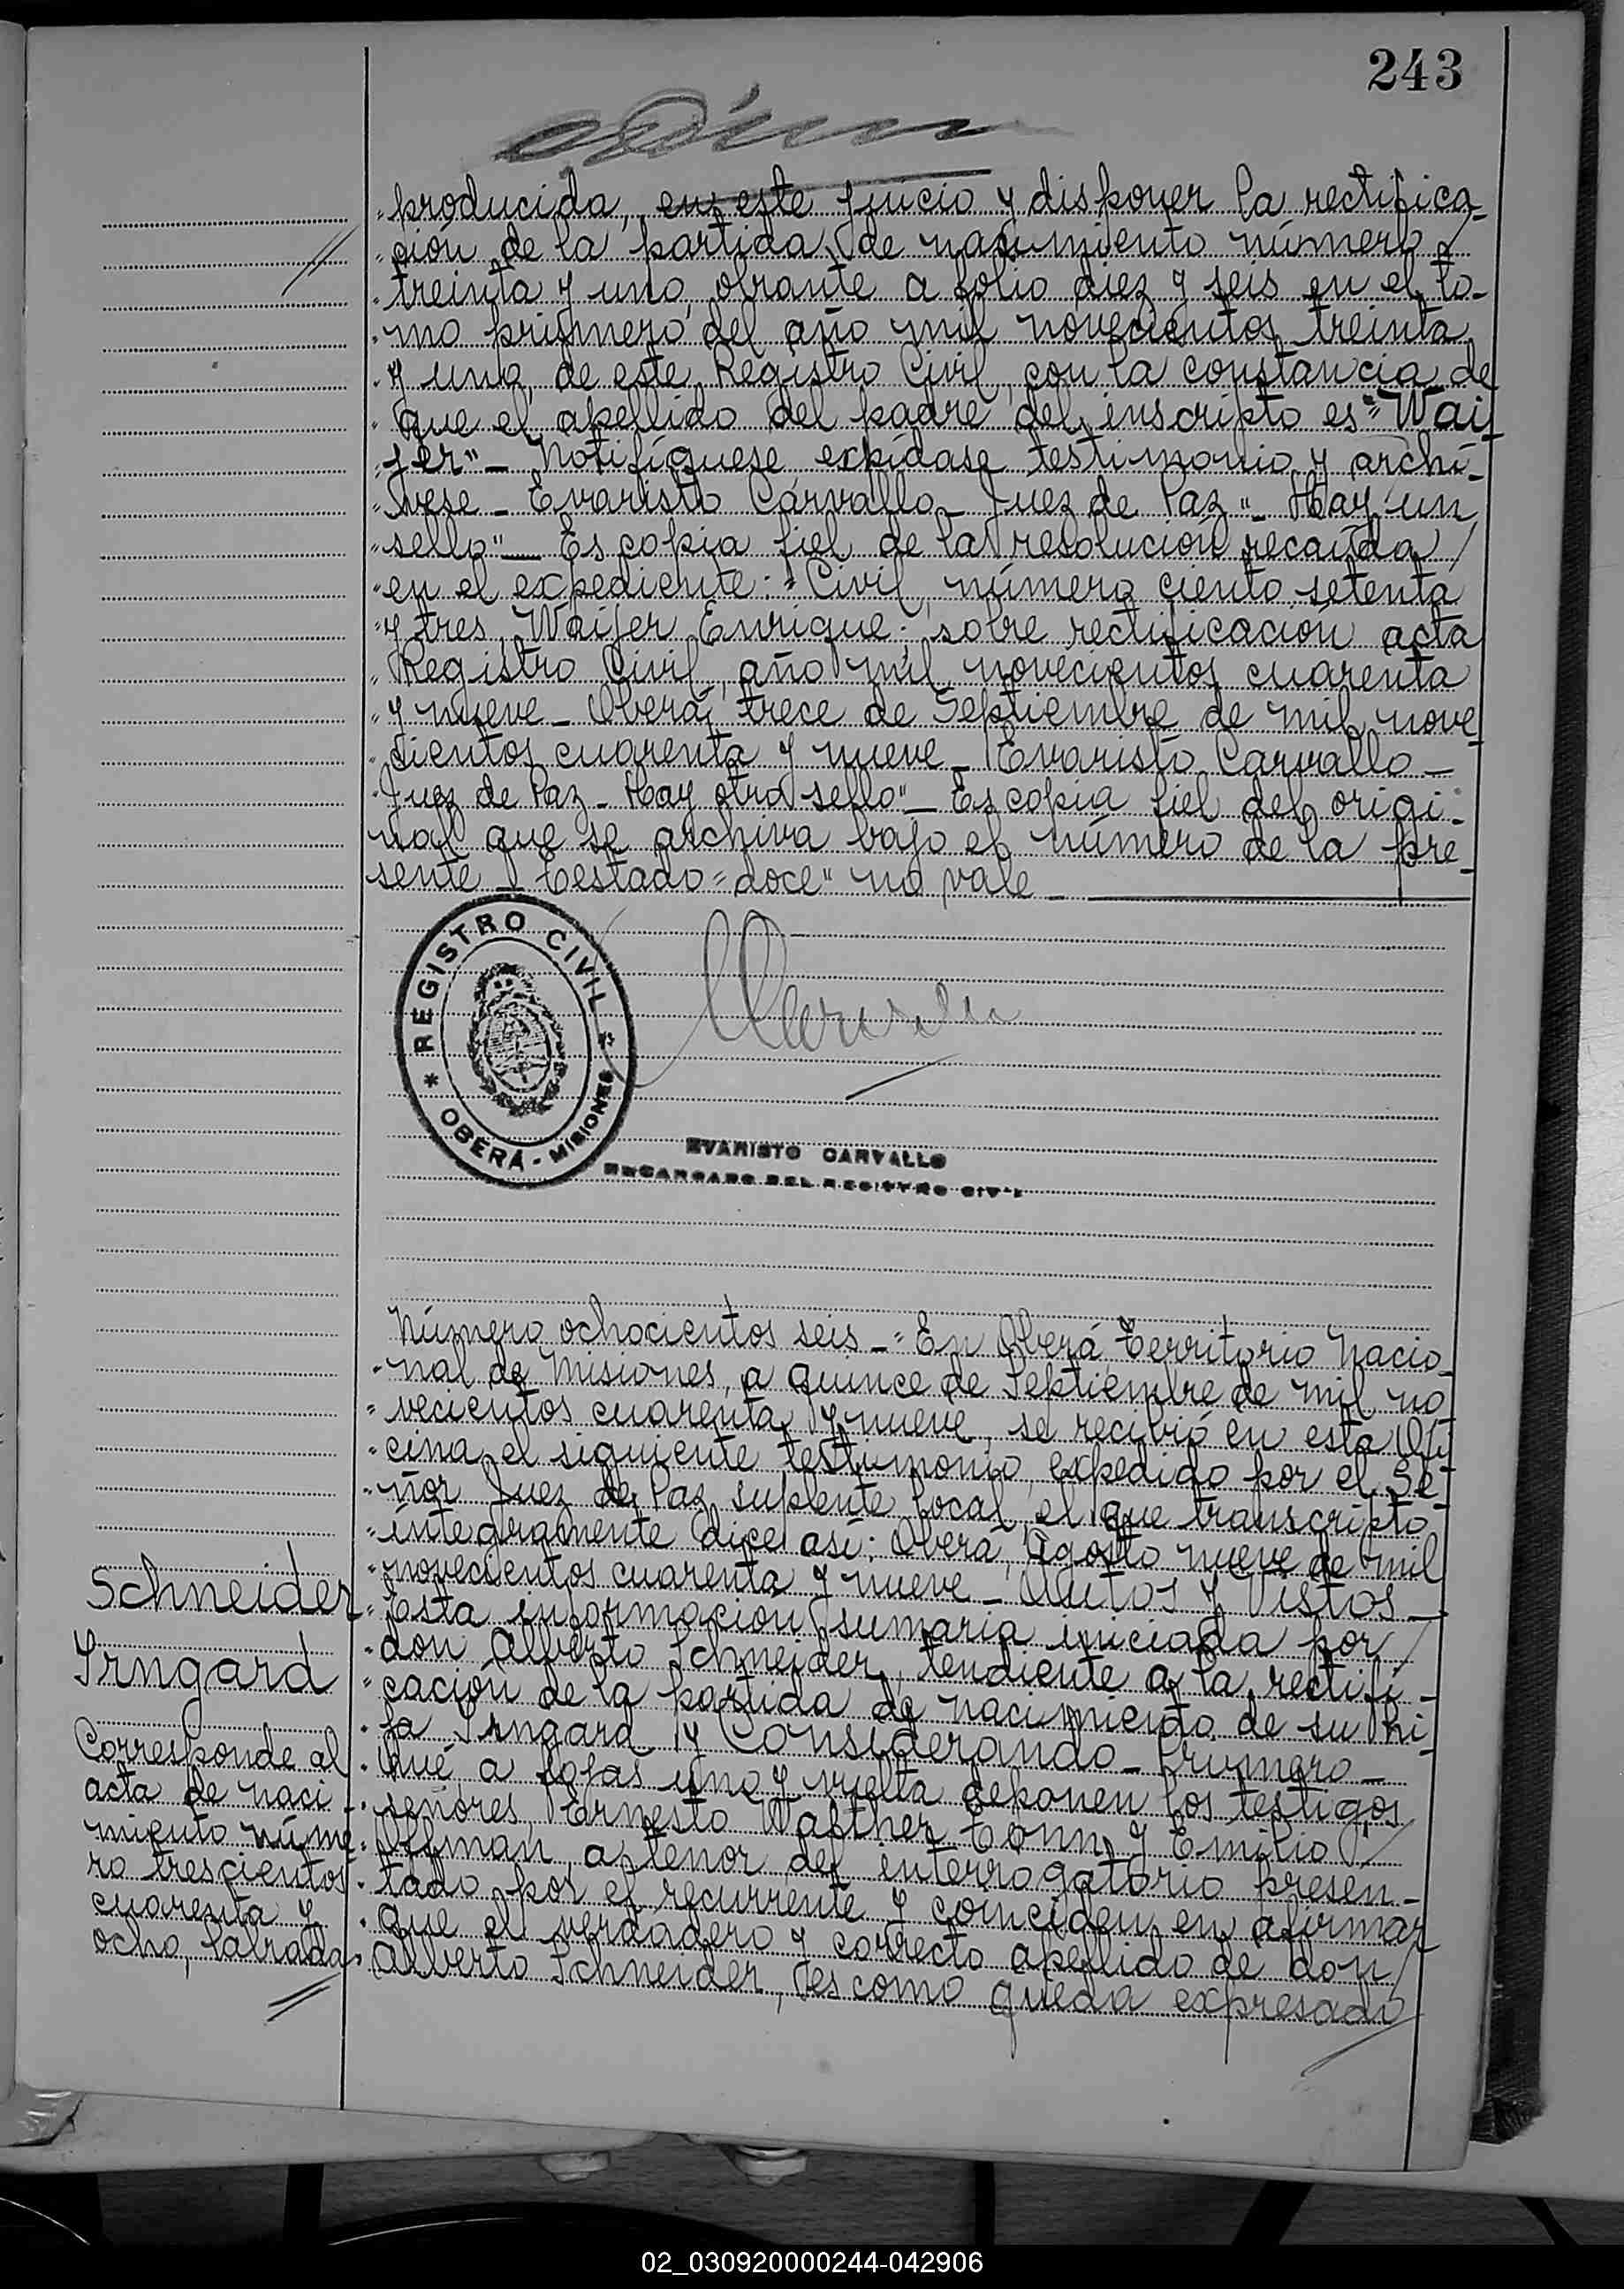 243
"producida, en este juicio y disponer la rectifica-
"ción de la partida de nacimiento número
"treinta y uno, obrante a folio diez y seis en el to-
"mo primero del año mil novecientos treinta
"y uno, de este Registro Civil, con la constancia de
"que el apellido del padre del inscripto es "Wai
"fer"_ Notifíquese expídase testimonio y archí-
"vese_ Evaristo Carvallo_ Juez de Paz"_ Hay un
"sello"_ Es copia fiel de la resolución recaída
"en el expediente: "Civil, número ciento setenta
"y tres, Waifer Enrique: sobre rectificación acta
"Registro Civil, año mil novecientos cuarenta
"y nueve_ Oberá, trece de Septiembre de mil nove
"cientos cuarenta y nueve_ Evaristo Carvallo_
"Juez de Paz_ Hay otro sello"_ Es copia fiel del origi-
nal que se archiva bajo el número de la pre-
sente_ Testado="doce" no vale
REGISTRO CIVIL
OBERÁ - MISIONES
EVARISTO CARVALLO
ENCARGADO DEL REGISTRO CIVIL
Número ochocientos seis_ "En Oberá, Territorio Nacio-
"nal de Misiones, a quince de Septiembre de mil no
"vecientos cuarenta y nueve, se recibió en esta Ofi
"cina el siguiente testimonio, expedido por el Se-
"ñor Juez de Paz suplente local, el que transcripto
"íntegramente dice así: Oberá, Agosto nueve de mil
"novecientos cuarenta y nueve_ Autos y Vistos_
Schneider
"Esta información sumaria iniciada por
"don Alberto Schneider, tendiente a la rectifi-
Irmgard
"cación de la partida de nacimiento de su hi-
"ja Irmgard y Considerando_ Primero_
Corresponde al
"Que a fojas uno y vuelta deponen los testigos
acta de naci-
"señores, Ernesto Walther Conn y Emilio
miento núme
"Offman, a tenor del interrogatorio presen-
ro trescientos
"tado por el recurrente y coinciden en afirmar
cuarenta y
"que el verdadero y correcto apellido de don
ocho, labrada
"Alberto Schneider, es como queda expresado
02_030920000244-042906